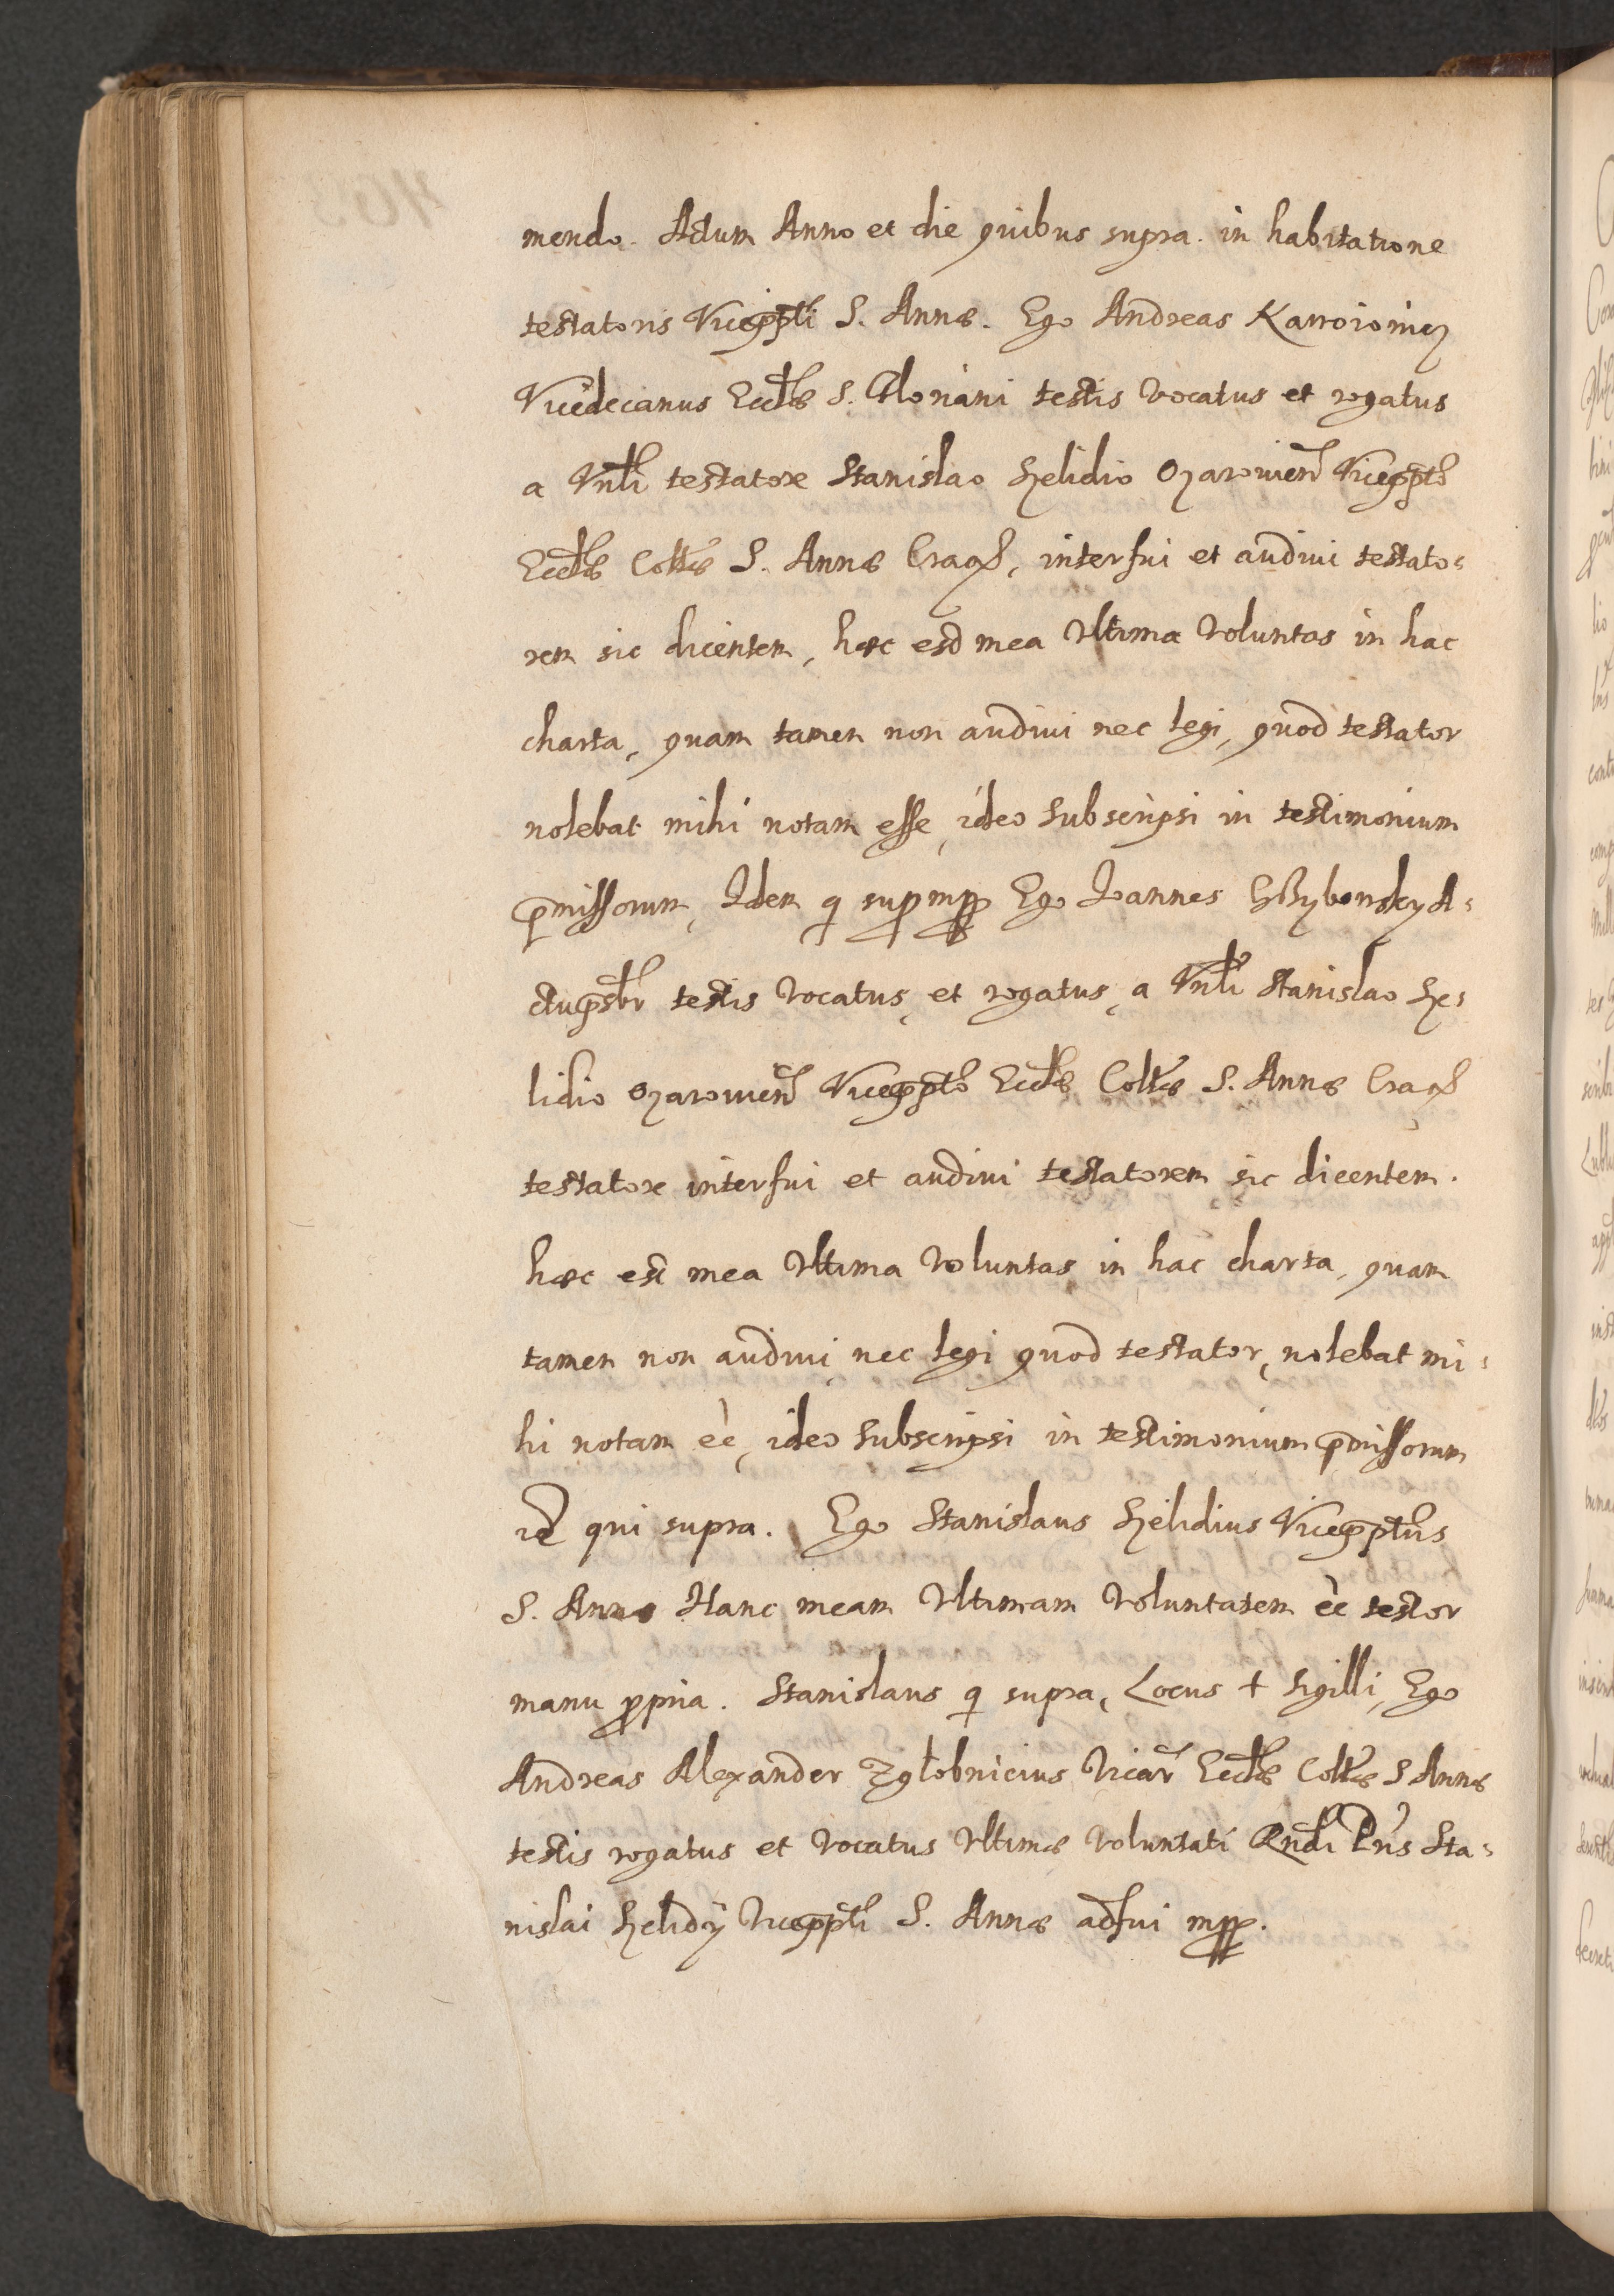 mendo. Actum Anno et die quibus supra. in habitatione
testatoris Viceppti S. Annæ. Ego Andreas
Vicedecanus Eccłæ S. Floriani testis vocatus et rogatus
a Vnłi testatore Stanislao Helidio Ozarowien Viceppto
Eccłæ Collæ S. Annæ Crac, interfui et audivi testato=
rem sic dicentem, hæc est mea Ultima Voluntas in hac
charta, quam tamen non audivi nec legi, quod testator
nolebat mihi notam esse, ideo subscripsi in testimonium
pmissorum, Idem q supr mpp Ego Joannes A=
ctu psbr testis vocatus, et rogatus, a Vnłi Stanislao He=
lidio Ozarowien Viceppto Eccłæ Collæ S. Annæ Crac
testatore interfui et audivi testatorem sic dicentem.
hæc est mea Ultima Voluntas in hac charta, quam
tamen non audivi nec legi quod testator, nolebat mi=
hi notam eè, ideo subscripsi in testimonium pmissorum
idē qui supra. Ego Stanislaus Helidius Vicepptus
S. Annæ Hanc meam Ultimam Voluntatem eè testor
manu ppria. Stanislaus q supra, Locus + Sigilli, Ego
Andreas Alexander Zgłobnicius Vicar Eccłæ Collæ S Annæ
testis rogatus et vocatus Ultimæ Voluntati Rndi Dni Sta=
nislai Helidÿ Viceppti S. Annæ adfui mpp.